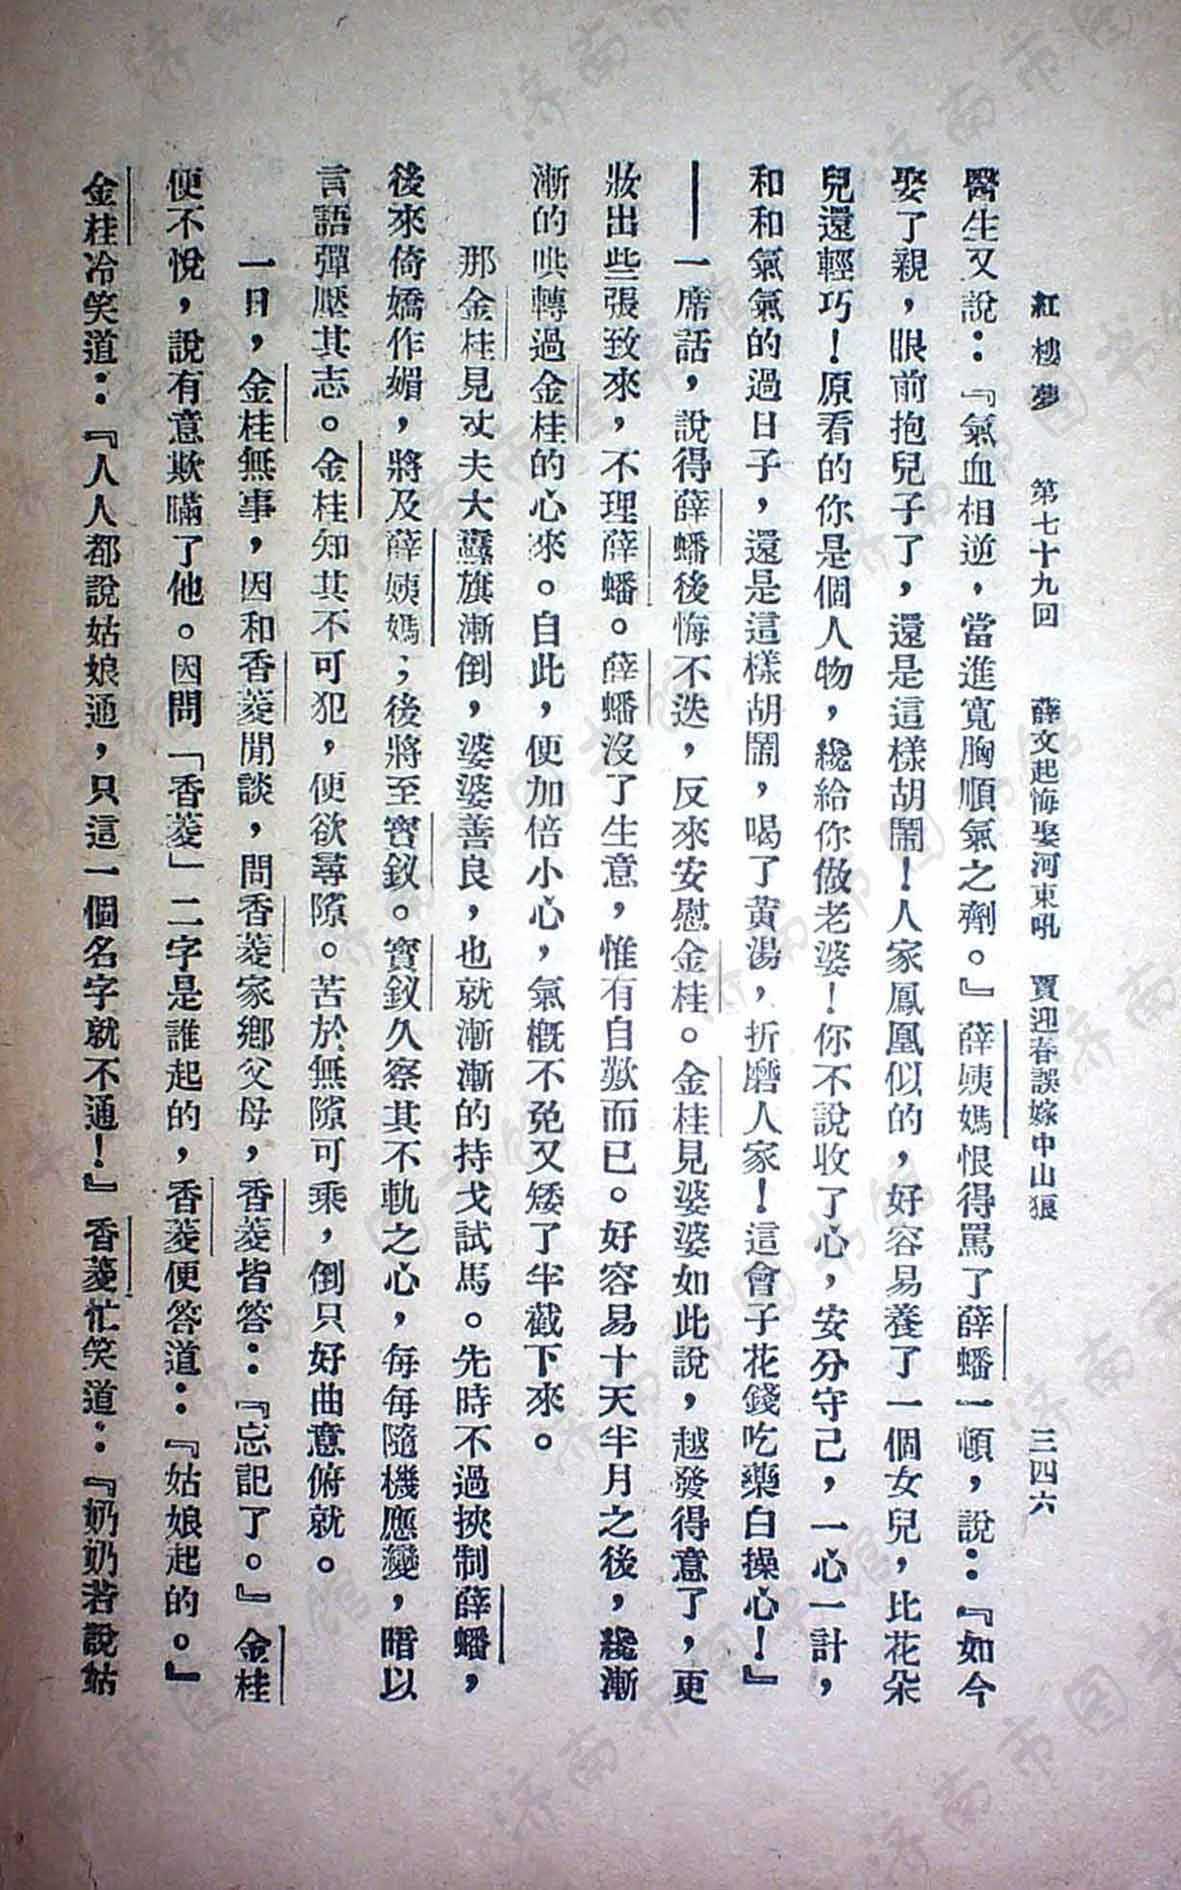 紅樓夢 第七十九回 薛文起悔娶河東吼 賈迎春誤嫁中山狼 三四六
醫生又說：『氣血相逆，當進寬胸順氣之劑。』薛姨媽恨得罵了薛蟠一頓，說：『如今
娶了親，眼前抱兒子了，還是這樣胡鬧！人家鳳凰似的，好容易養了一個女兒，比花朵
兒還輕巧！原看的你是個人物，纔給你做老婆！你不說收了心，安分守己，一心一計，
和和氣氣的過日子，還是這樣胡鬧，喝了黃湯，折磨人家！這會子花錢吃藥白操心！』
——一席話，說得薛蟠後悔不迭，反來安慰金桂。金桂見婆婆如此說，越發得意了，更
妝出些張致來，不理薛蟠。薛蟠沒了生意，惟有自歎而已。好容易十天半月之後，纔漸
漸的哄轉過金桂的心來。自此，便加倍小心，氣概不免又矮了半截下來。
那金桂見丈夫大纛旗漸倒，婆婆善良，也就漸漸的持戈試馬。先時不過挾制薛蟠，
後來倚嬌作媚，將及薛姨媽；後將至寶釵。寶釵久察其不軌之心，每每隨機應變，暗以
言語彈壓其志。金桂知其不可犯，便欲尋隙。苦於無隙可乘，倒只好曲意俯就。
一日，金桂無事，因和香菱閒談，問香菱家鄉父母，香菱皆答：『忘記了。』金桂
便不悅，說有意欺瞞了他。因問「香菱」二字是誰起的，香菱便答道：『姑娘起的。』
金桂冷笑道：『人人都說姑娘通，只這一個名字就不通！』香菱忙笑道：『奶奶若說姑
济南市图书馆